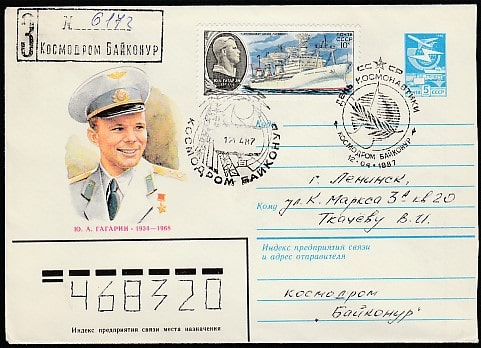 З
N 6172
Космодром Байконур
Ю.А. ГАГАРИН
ПОЧТА СССР
10к
ПОЧТА
5к СССР
СССР
ДЕНЬ КОСМОНАВТИКИ
КОСМОДРОМ БАЙКОНУР
12•04•1987
КОСМОДРОМ БАЙКОНУР
Куда
г. Ленинск,
ул. К. Маркса 3а кв 20
Кому
Ткачеву В. И.
Ю. А. ГАГАРИН • 1934—1968
Индекс предприятия связи
и адрес отправителя
космодром
"Байконур"
468320
Индекс предприятия связи места назначения